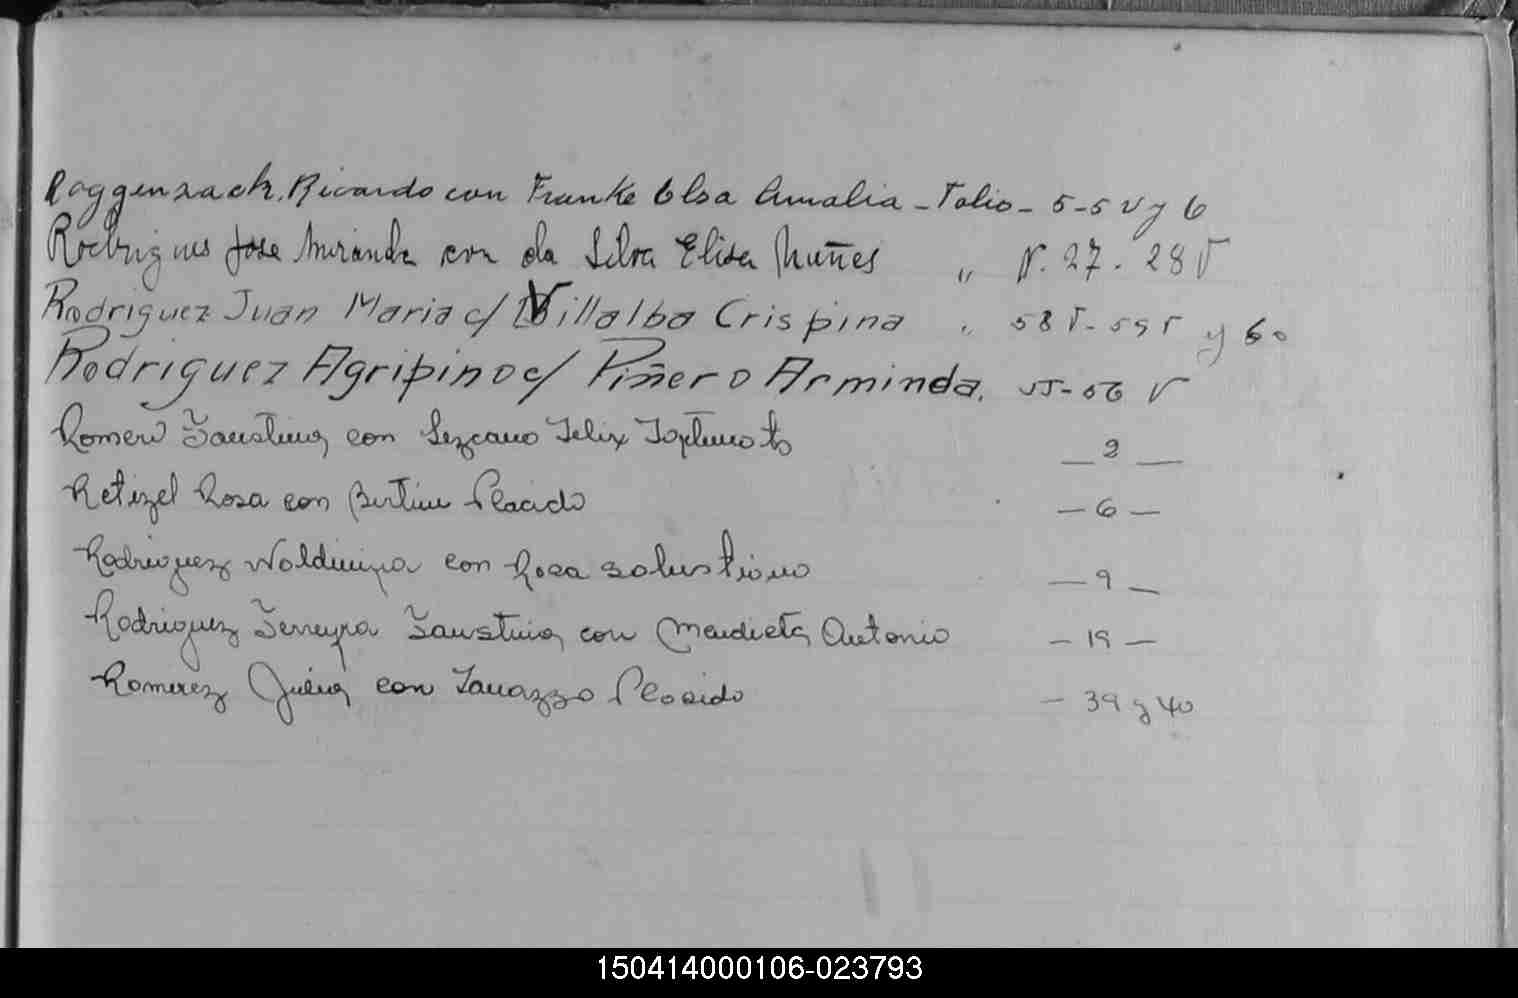 Roggensack, Ricardo con Franke Elsa Amalia - Folio - 5-5 v y 6
Rodrigues Jose Miranda con da Silva Elisa Nuñes " N. 27. 28 V
Rodriguez Juan Maria c/ Villalba Crispina " 58 V- 59 V y 60
Rodriguez Agripino c/ Piñero Arminda. 55-56 V
Romero Faustina con Lezcano Felix — 2 —
Retizel Rosa con Bertini Placido — 6 —
Rodriguez Waldimira con Rosa Salustiano — 9 —
Rodriguez Ferreyra Faustina con Mendieta Antonio — 19 —
Romerez Julia con Tarazzo Placido — 39 y 40
150414000106-023793